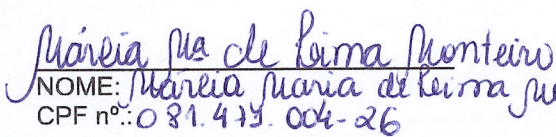 Márcia Mª de Lima Monteiro
NOME: Márcia Maria de Lima M
CPF nº.: 081.477.004-26